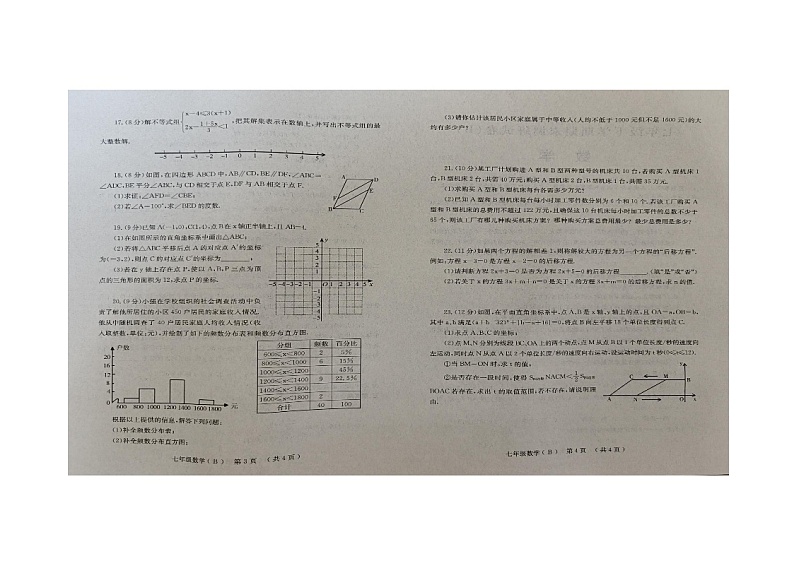 17.(8分)解不等式组{x-4≤3(x+1) 2x-(1+5x)/3<1,把其解集表示在数轴上,并写出不等式组的最
大整数解.
-5 -4 -3 -2 -1 0 1 2 3 4 5
18.(8分)如图,在四边形 ABCD 中,AB∥CD,BE∥DF,∠ABC=
∠ADC,BE平分∠ABC,与CD相交于点E,DF与AB相交于点F.
(1)求证:∠AFD=∠CBE;
(2)若∠A=100°,求∠BED的度数.
19.(9分)已知A(-1,0),C(1,4),点B在x轴正半轴上,且AB=4.
(1)在如图所示的直角坐标系中画出△ABC;
(2)若将△ABC平移后点A的对应点A′的坐标
为(-3,2),则点C的对应点C′的坐标为______;
(3)若在y轴上存在点P,使以A,B,P三点为顶
点的三角形的面积为12,求点P的坐标.
20.(9分)小薇在学校组织的社会调查活动中负
责了解他所居住的小区450户居民的家庭收入情况,
他从中随机调查了40户居民家庭人均收入情况(收
入取整数,单位:元),并绘制了如下的频数分布表和频数分布直方图.
户数
20
16
12
8
4
600 800 1000 1200 1400 1600 1800 元
分组 频数 百分比
600≤x<800 2 5%
800≤x<1000 6 15%
1000≤x<1200 45%
1200≤x<1400 9 22.5%
1400≤x<1600
1600≤x<1800 2
合计 40 100
根据以上提供的信息,解答下列问题:
(1)补全频数分布表;
(2)补全频数分布直方图;
七年级数学(B) 第3页 (共4页)
(3)请你估计该居民小区家庭属于中等收入(人均不低于1000元但不足1600元)的大
约有多少户?
21.(10分)某工厂计划购进A型和B型两种型号的机床共10台,若购买A型机床1
台,B型机床2台,共需40万元;购买A型机床2台,B型机床1台,共需35万元.
(1)求购买A型和B型机床每台各需多少万元?
(2)已知A型和B型机床每台每小时加工零件数分别为6个和10个.若该工厂购买A
型和B型机床的总费用不超过122万元,且确保这10台机床每小时加工零件的总数不少于
65个,则该工厂有哪几种购买机床方案?哪种购买方案总费用最少?最少总费用是多少?
22.(11分)如果两个方程的解相差1,则称解较大的方程为另一个方程的“后移方程”.
例如,方程x-3=0是方程x-2=0的后移方程.
(1)请判断方程2x+3=0是否为方程2x+5=0的后移方程______.(填“是”或“否”)
(2)若关于x的方程3x+m+n=0是关于x的方程3x+m=0的后移方程,求n的值.
23.(12分)如图,在平面直角坐标系中,点A,B是x轴、y轴上的点,且OA=a,OB=b,
(1)求点A,B,C的坐标;
(2)点M,N分别为线段BC,OA上的两个动点,点M从点B以1个单位长度/秒的速度向
左运动,同时点N从点A以2个单位长度/秒的速度向右运动,设运动时间为t秒
①当BM=ON时,求t的值;
②是否存在一段时间,使得
BOAC 若存在,求出t的取值范围;若不存在,请说明理
由.
y
C M B
A N O x
七年级数学(B) 第4页 (共4页)